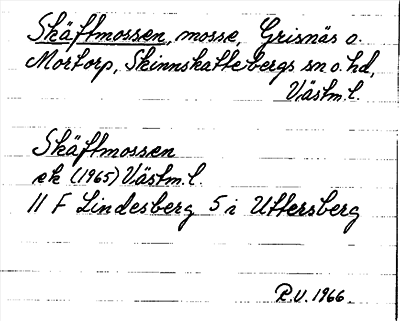 Skäftmossen, mosse, Grisnäs o.
Mortorp, Skinnskattebergs sn o. hd,
Västm. l.
Skäftmossen
ek (1965) Västm. l.
11 F Lindesberg 5 i Uttersberg
R.V. 1966